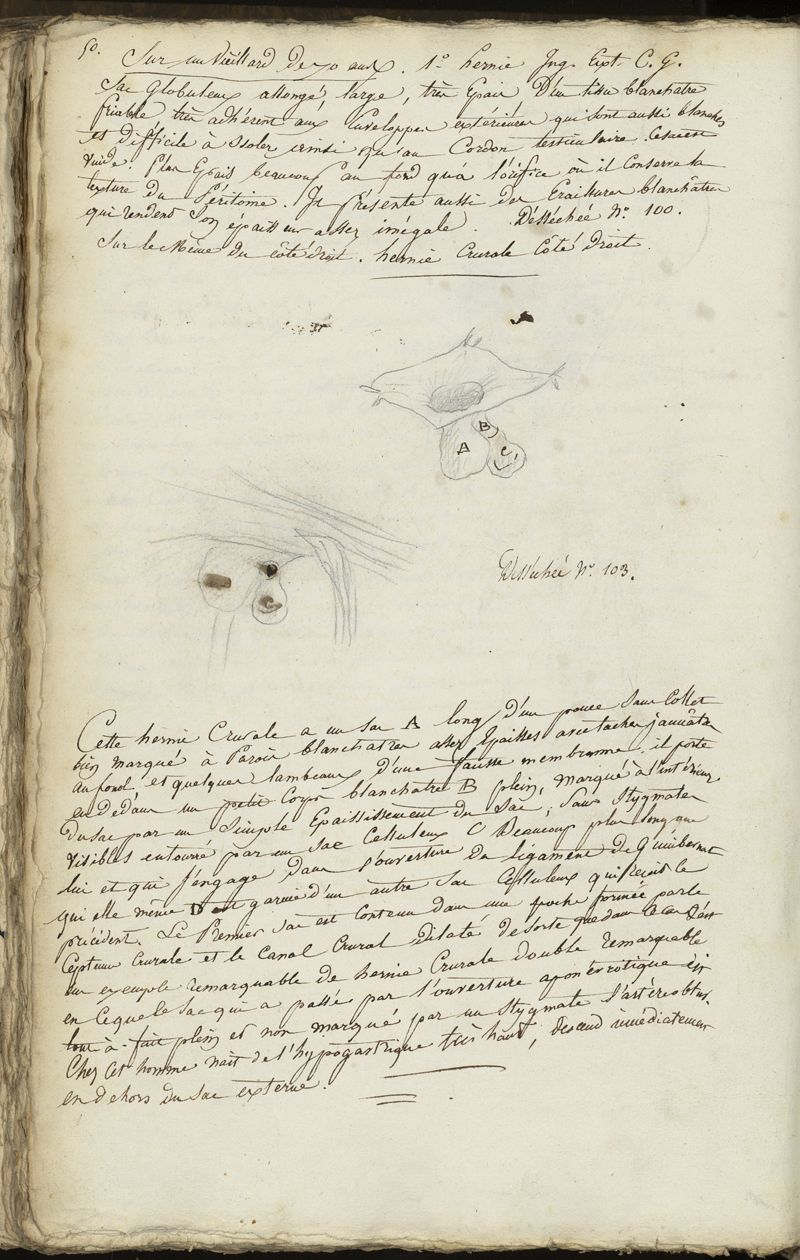 50.
Sur un Vieillard de 70 ans. 1° hernie Ing. Ext. C. G.
Sac Globuleux allongé, large, très Epais, D'un tissu blanchatre
friable, très adhérent aux Enveloppes extérieures qui sont aussi blanches
et difficile à isoler ainsi qu'au Cordon testiculaire. Ce sac est
vuide. Plus Epais beaucoup au fond qu'à l'orifice où il Conserve la
texture du Péritoine. Il présente aussi des Eraillures blanchâtres
qui rendent son épaisseur assez inégale. Désséchée N° 100.
Sur le Même du côté droit. hernie Crurale Côté Droit.
A
B
C
D
C
Désséchée N° 103.
Cette hernie Crurale a un sac A long d'un pouce Sans Collet
bien marqué à Parois blanchatres assez Epaisses avec taches jaunâtres
au fond, et quelques lambeaux d'une fausse membranne. il porte
en dedans un petit Corps blanchatre B plein, marqué à l'intérieur
du sac par un Simple Epaississement du Sac, Sans Stygmates
visibles entourré par un sac Celluleux C Beaucoup plus long que
lui et qui s'engage dans l'ouverture du ligament de Gimbernat
qui elle même D est garnie d'un autre Sac Celluleux qui rejoint le
précédent. Le Premier sac est Contenu dans une poche formée par le
Ceptum Crurale et le Canal Crural dilaté de sorte que dans ce cas c'est
un exemple remarquable de hernie Crurale double remarquable
en ce que le sac qui a passé par l'ouverture aponévrotique est
tout à fait plein et non marqué par un Stygmate l'artère obtur.
Chez Cet homme nait de l'hypogastrique très haut, descend immédiatement
en dehors du sac externe.